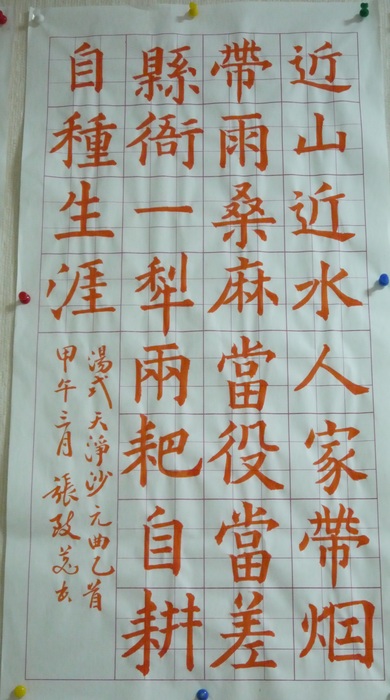 近山近水人家帶烟
帶雨桑麻當役當差
縣衙一犁兩耙自耕
自種生涯
湯式天淨沙元曲乙首
甲午三月張政